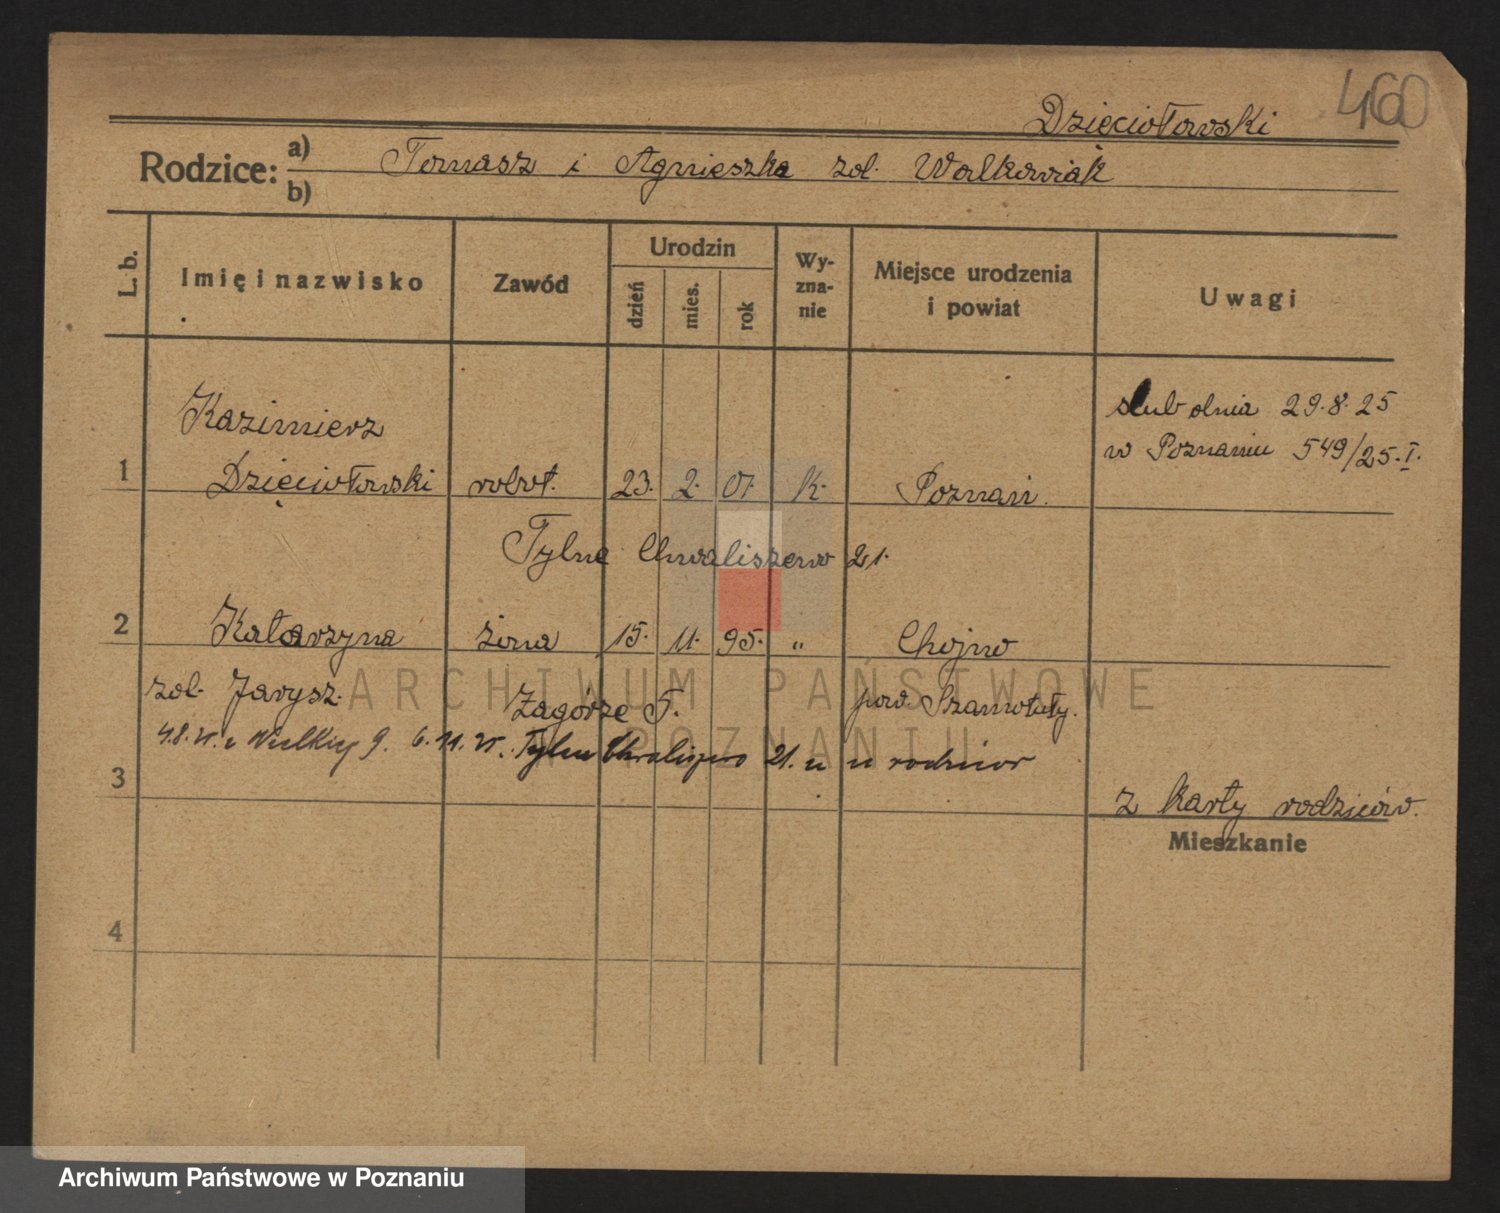 460
Dzięciołowski
Rodzice: a) b) Tomasz i Agnieszka zol. Walkowiak
L. b.
Imię i nazwisko
Zawód
Urodzin
dzień
mies.
rok
Wy-
zna-
nie
Miejsce urodzenia
i powiat
Uwagi
ślub dnia 29.8.25
w Poznaniu 549/25.I.
Kazimierz
1 Dzięciołowski robot. 23. 2. 01. K. Poznań.
Tylne Chwaliszewo 21.
2 Katarzyna żona 15. 11. 95. " Chojno
zol. Jarysz. Zagórze 5. pow. Szamotuły.
4.8. Wielkiej 9. 6.11. Tylne Chwaliszewo 21. u rodziców
3
z karty rodziców.
Mieszkanie
4
ARCHIWUM PAŃSTWOWE
W POZNANIU
Archiwum Państwowe w Poznaniu